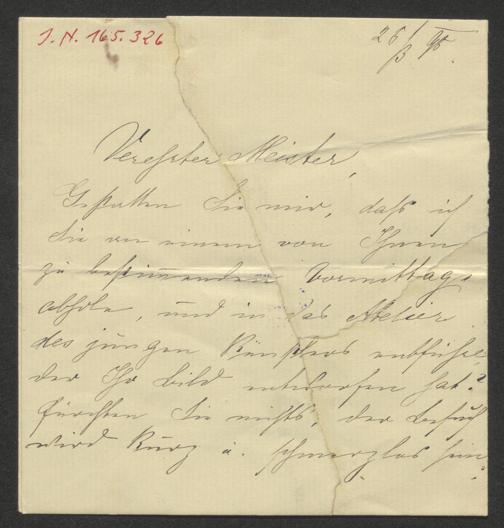 J. N. 165.326
26/3 95.
Verehrter Meister,
Gestatten Sie mir, daß ich
Sie an einem von Ihnen
zu bestimmenden Vormittags
abhole, und in das Atelier
des jungen Künstlers entführe
der Ihr Bild entworfen hat?
Fürchten Sie nichts, der Besuch
wird kurz u. schmerzlos sein.